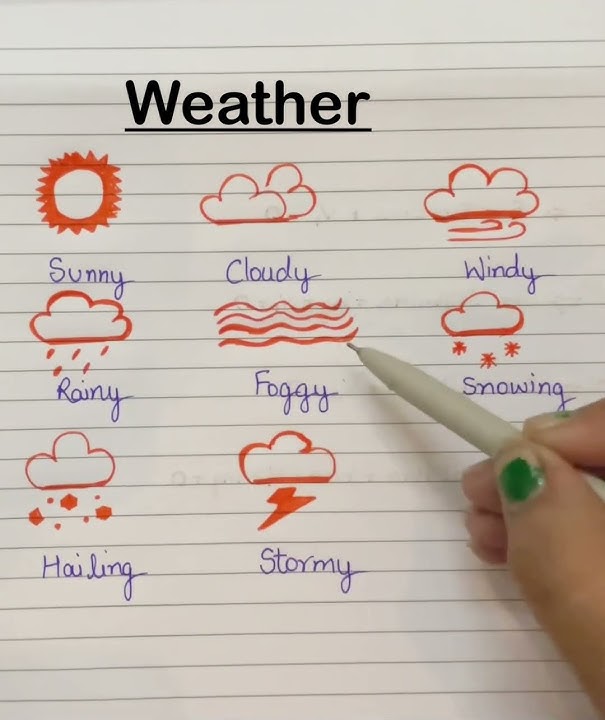 Weather
Sunny Cloudy Windy
Rainy Foggy Snowing
Hailing Stormy